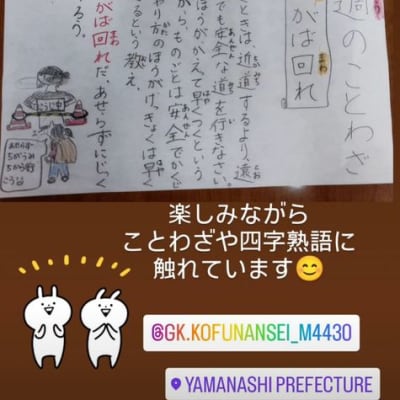 週のことわざ
がば回れ
ときは、近道するより、遠
でも安全な道を行きなさい。
ほうがかえって早くつくという
から、ものごとは安全でかくじ
やり方のほうがけっきょくは早く
るという教え。
がば回れだ、あせらずにじっく
ろう。
楽しみながら
ことわざや四字熟語に
触れています😊
@GK.KOFUNANSEI_M4430
YAMANASHI PREFECTURE